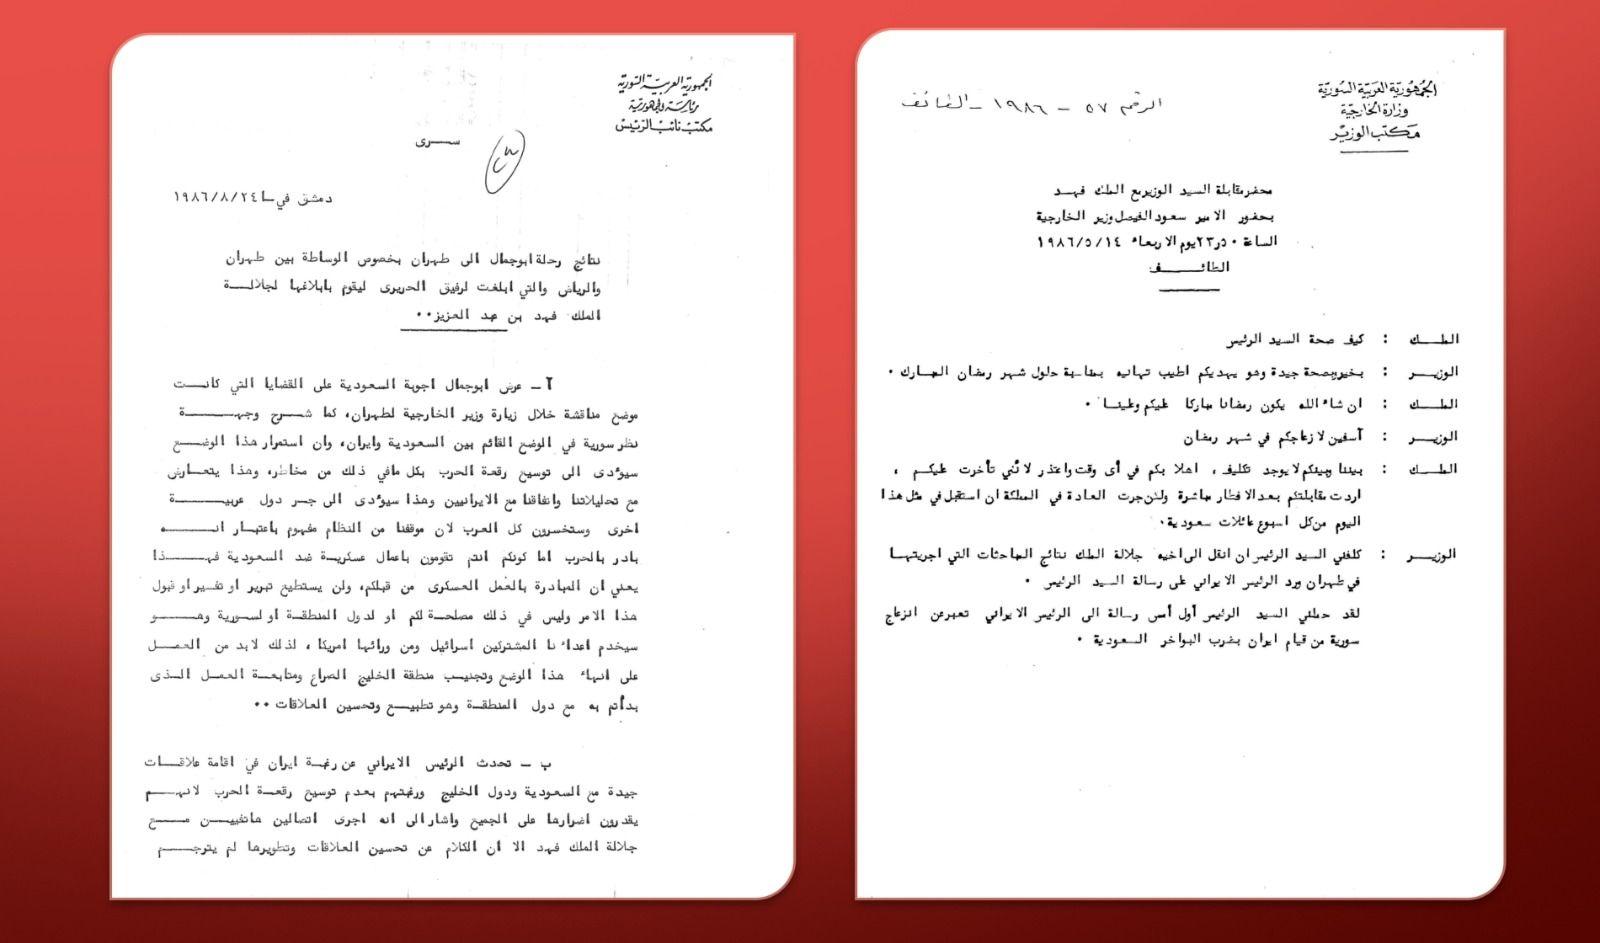 الجمهورية العربية السورية
وزارة الخارجية
مكتب الوزير
الرقم ٥٧ - ١٩٨٦ - الطائف
محضر مقابلة السيد الوزير مع الملك فهد
بحضور الامير سعود الفيصل وزير الخارجية
الساعة ٢٣،٥٠ يوم الاربعاء ١٩٨٦/٥/١٤
الطائف
الملك : كيف صحة السيد الرئيس
الوزير : بخير وبصحة جيدة وهو يهديكم اطيب تهانيه بمناسبة حلول شهر رمضان المبارك .
الملك : ان شاء الله يكون رمضانا مباركا عليكم وعلينا .
الوزير : آسفين لازعاجكم في شهر رمضان
الملك : بيننا وبينكم لا يوجد تكليف ، اهلا بكم في أى وقت واعتذر لأنني تأخرت عليكم ،
اردت مقابلتكم بعد الافطار مباشرة ولكن جرت العادة في المملكة ان استقبل في مثل هذا
اليوم من كل اسبوع عائلات سعودية .
الوزير : كلفني السيد الرئيس ان انقل الى اخيه جلالة الملك نتائج المباحثات التي اجريتها
في طهران ورد الرئيس الايراني على رسالة السيد الرئيس .
لقد حملني السيد الرئيس أول أمس رسالة الى الرئيس الايراني تعبر عن انزعاج
سورية من قيام ايران بضرب البواخر السعودية .
الجمهورية العربية السورية
رئاسة الجمهورية
مكتب نائب الرئيس
سرى
دمشق في ١٩٨٦/٨/٢٤
نتائج رحلة ابو جمال الى طهران بخصوص الوساطة بين طهران
والرياض والتي ابلغت لرفيق الحريرى ليقوم بابلاغها لجلالة
الملك فهد بن عبد العزيز ..
آ - عرض ابو جمال اجوبة السعودية على القضايا التي كانت
موضع مناقشة خلال زيارة وزير الخارجية لطهران، كما شرح وجهة
نظر سورية في الوضع القائم بين السعودية وايران، وان استمرار هذا الوضع
سيؤدى الى توسيع رقعة الحرب بكل مافي ذلك من مخاطر، وهذا يتعارض
مع تحليلاتنا واتفاقنا مع الايرانيين وهذا سيؤدى الى جر دول عربية
اخرى وستخسرون كل العرب لان موقفنا من النظام مفهوم باعتبار انه
بادر بالحرب اما كونكم انتم تقومون باعمال عسكرية ضد السعودية فهذا
يعني ان المبادرة بالعمل العسكرى من قبلكم، ولن يستطيع تبرير او تفسير او قبول
هذا الامر وليس في ذلك مصلحة لكم او لدول المنطقة او لسورية وهو
سيخدم اعداءنا المشتركين اسرائيل ومن ورائها امريكا ، لذلك لابد من العمل
على انهاء هذا الوضع وتجنيب منطقة الخليج الصراع ومتابعة العمل الذى
بدأتم به مع دول المنطقة وهو تطبيع وتحسين العلاقات ..
ب - تحدث الرئيس الايراني عن رغبة ايران في اقامة علاقات
جيدة مع السعودية ودول الخليج ورغبتهم بعدم توسيع رقعة الحرب لانهم
يقدرون اضرارها على الجميع واشار الى انه اجرى اتصالين هاتفيين مع
جلالة الملك فهد الا ان الكلام عن تحسين العلاقات وتطويرها لم يترجم